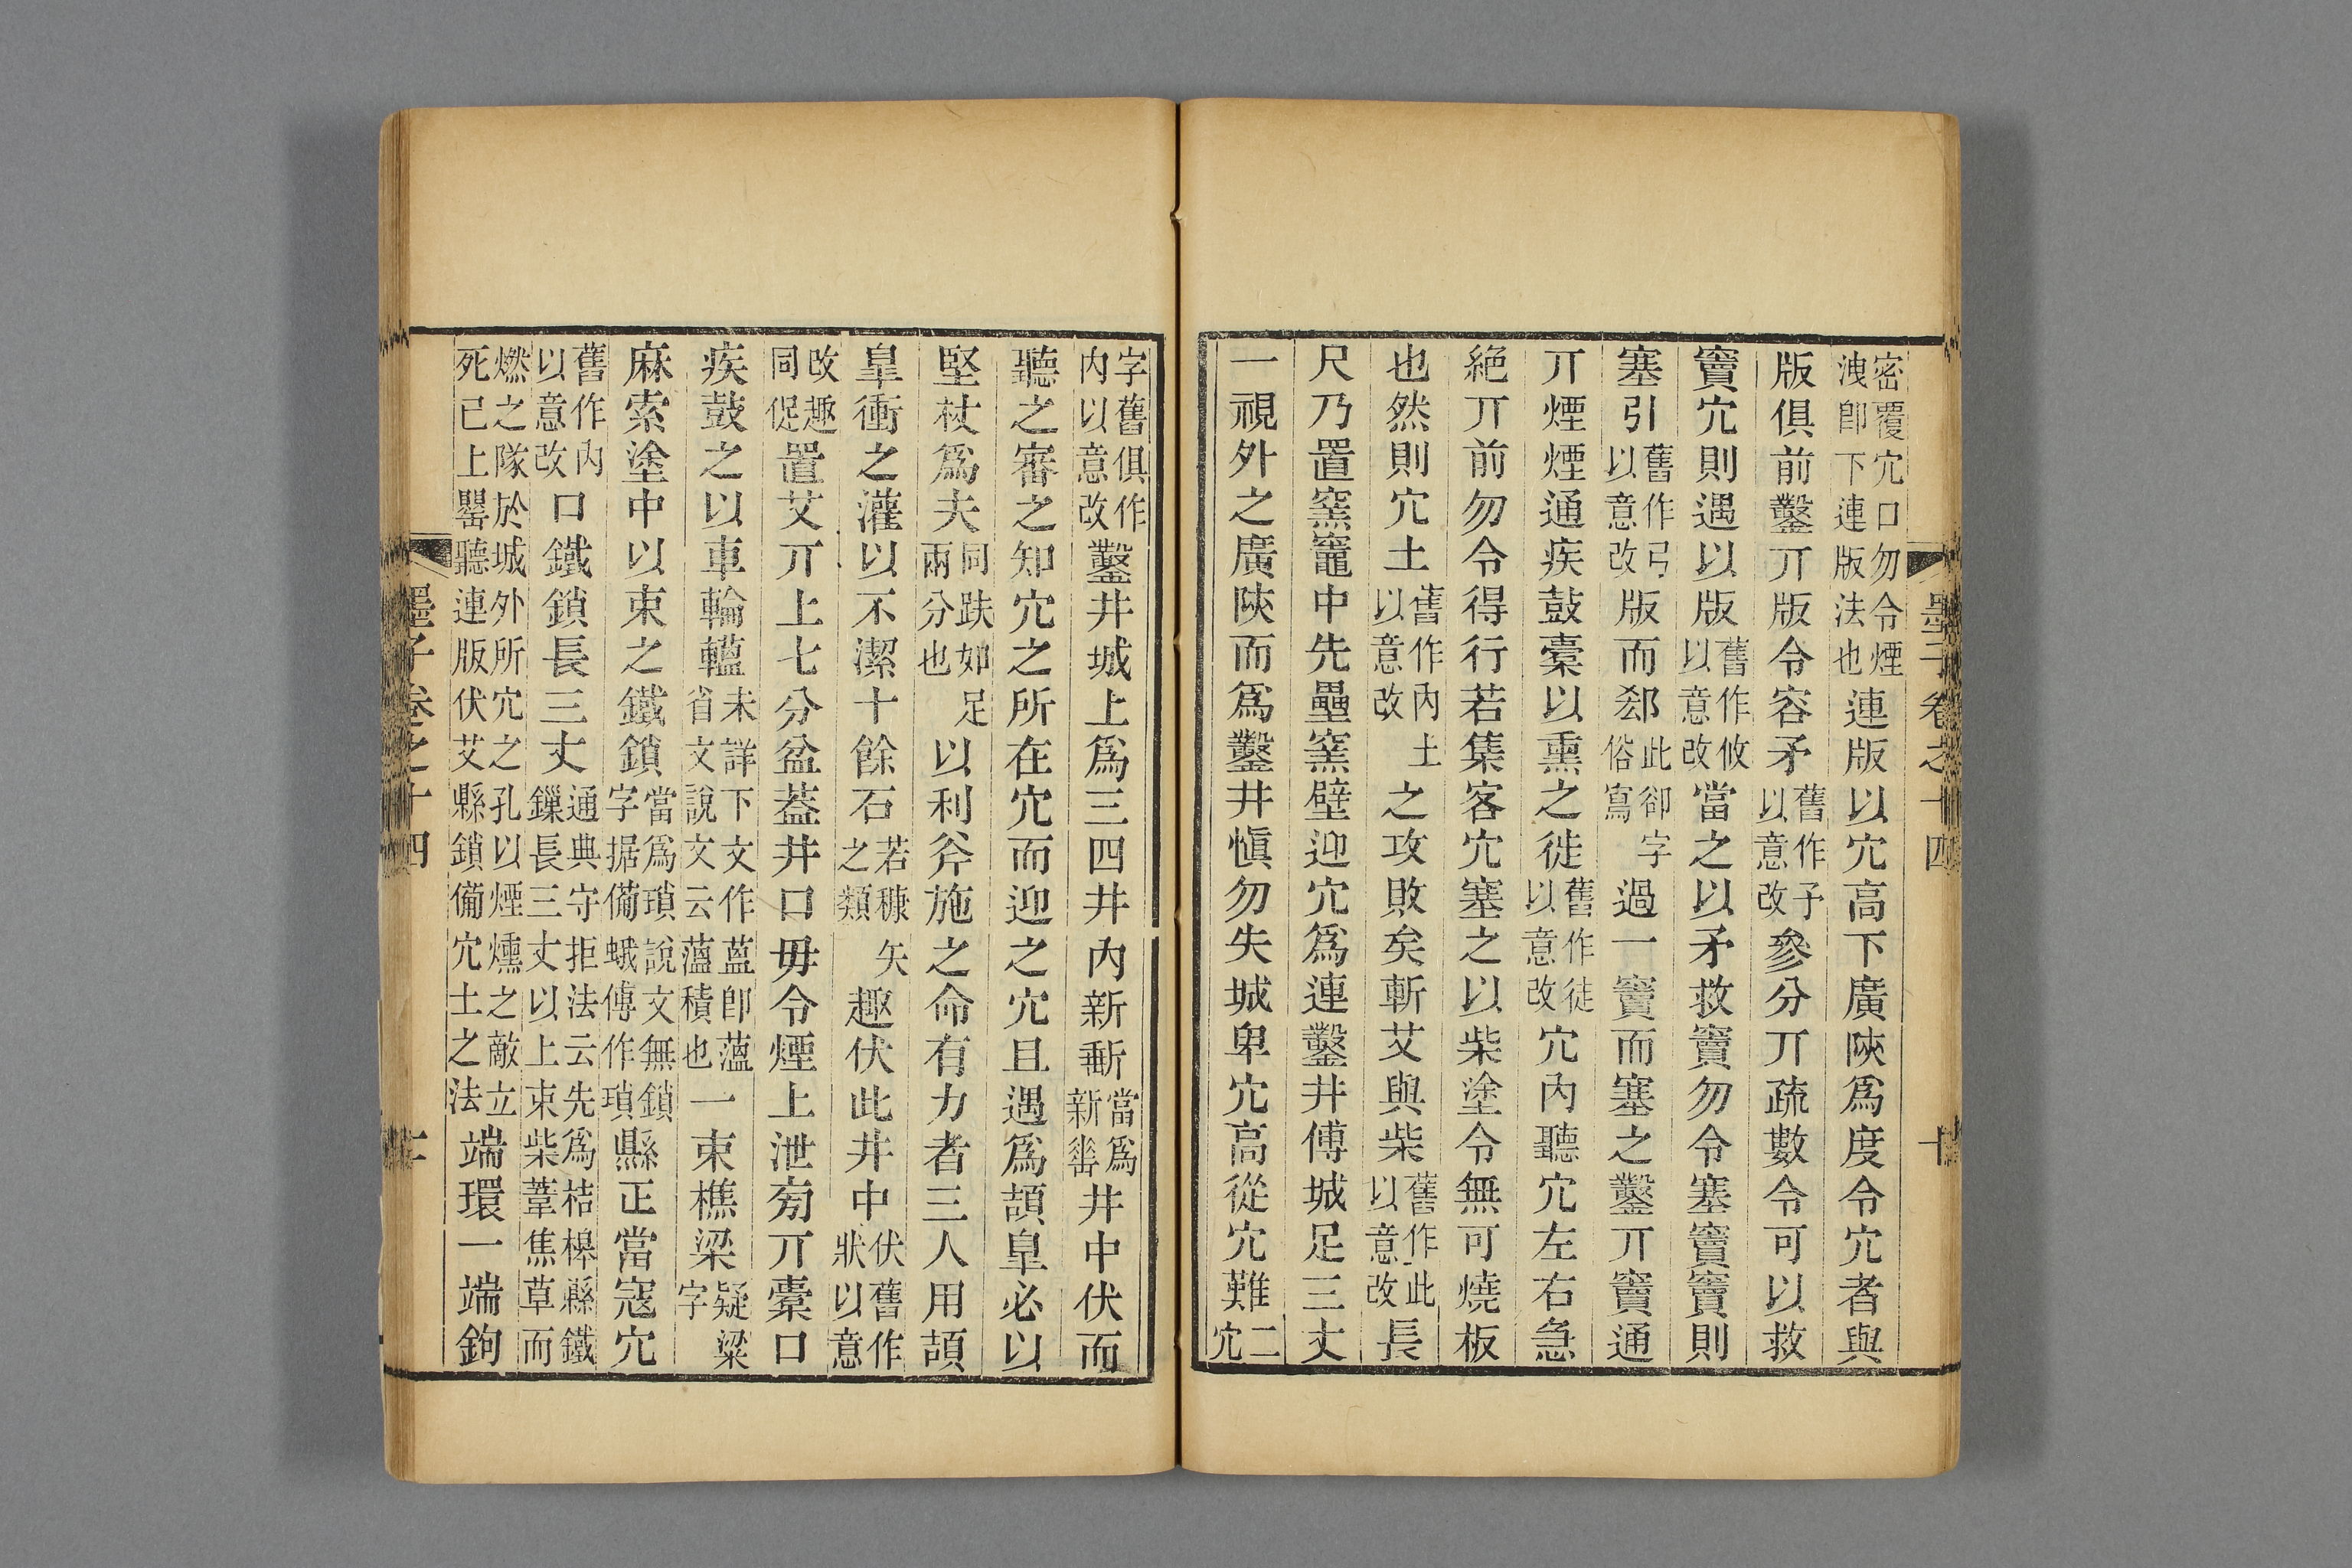 密覆穴口勿令煙洩卽下連版法也連版以穴高下廣陜爲度令穴者與
版俱前鑿丌版令容矛舊作予以意改參分丌疏數令可以救
竇穴則遇以版舊作攸以意改當之以矛救竇勿令塞竇竇則
塞引舊作弓以意改版而郄此卻字俗寫過一竇而塞之鑿丌竇通
丌煙煙通疾鼓橐以熏之徙舊作徒以意改穴內聽穴左右急
絕丌前勿令得行若集客穴塞之以柴塗令無可燒板
也然則穴土舊作內土以意改之攻敗矣斬艾與柴舊作此以意改長
尺乃置窯竈中先壘窯壁迎穴爲連鑿井傅城足三丈
一視外之廣陜而爲鑿井愼勿失城卑穴高從穴難二穴
墨子卷之十四
十
字舊俱作內以意改鑿井城上爲三四井內新斵當爲新井中伏而
聽之審之知穴之所在穴而迎之穴且遇爲頡皐必以
堅杖爲夫同趺如足兩分也以利斧施之命有力者三人用頡
皐衝之灌以不潔十餘石若穅矢之類趣伏此井中伏舊作狀以意
改趣同促置艾丌上七分盆葢井口毋令煙上泄旁丌橐口
疾鼓之以車輪轀未詳下文作蓝卽薀省文說文云薀積也一束樵梁疑粱字
麻索塗中以束之鐵鎖當爲瑣說文無鎖字据備蛾傅作瑣縣正當寇穴
舊作內以意改口鐵鎖長三丈通典守拒法云先爲桔槹縣鐵鏁長三丈以上束柴葦焦草而
燃之隊於城外所穴之孔以煙燻之敵立死已上罌聽連版伏艾縣鎖備穴土之法端環一端鉤
墨子卷之十四